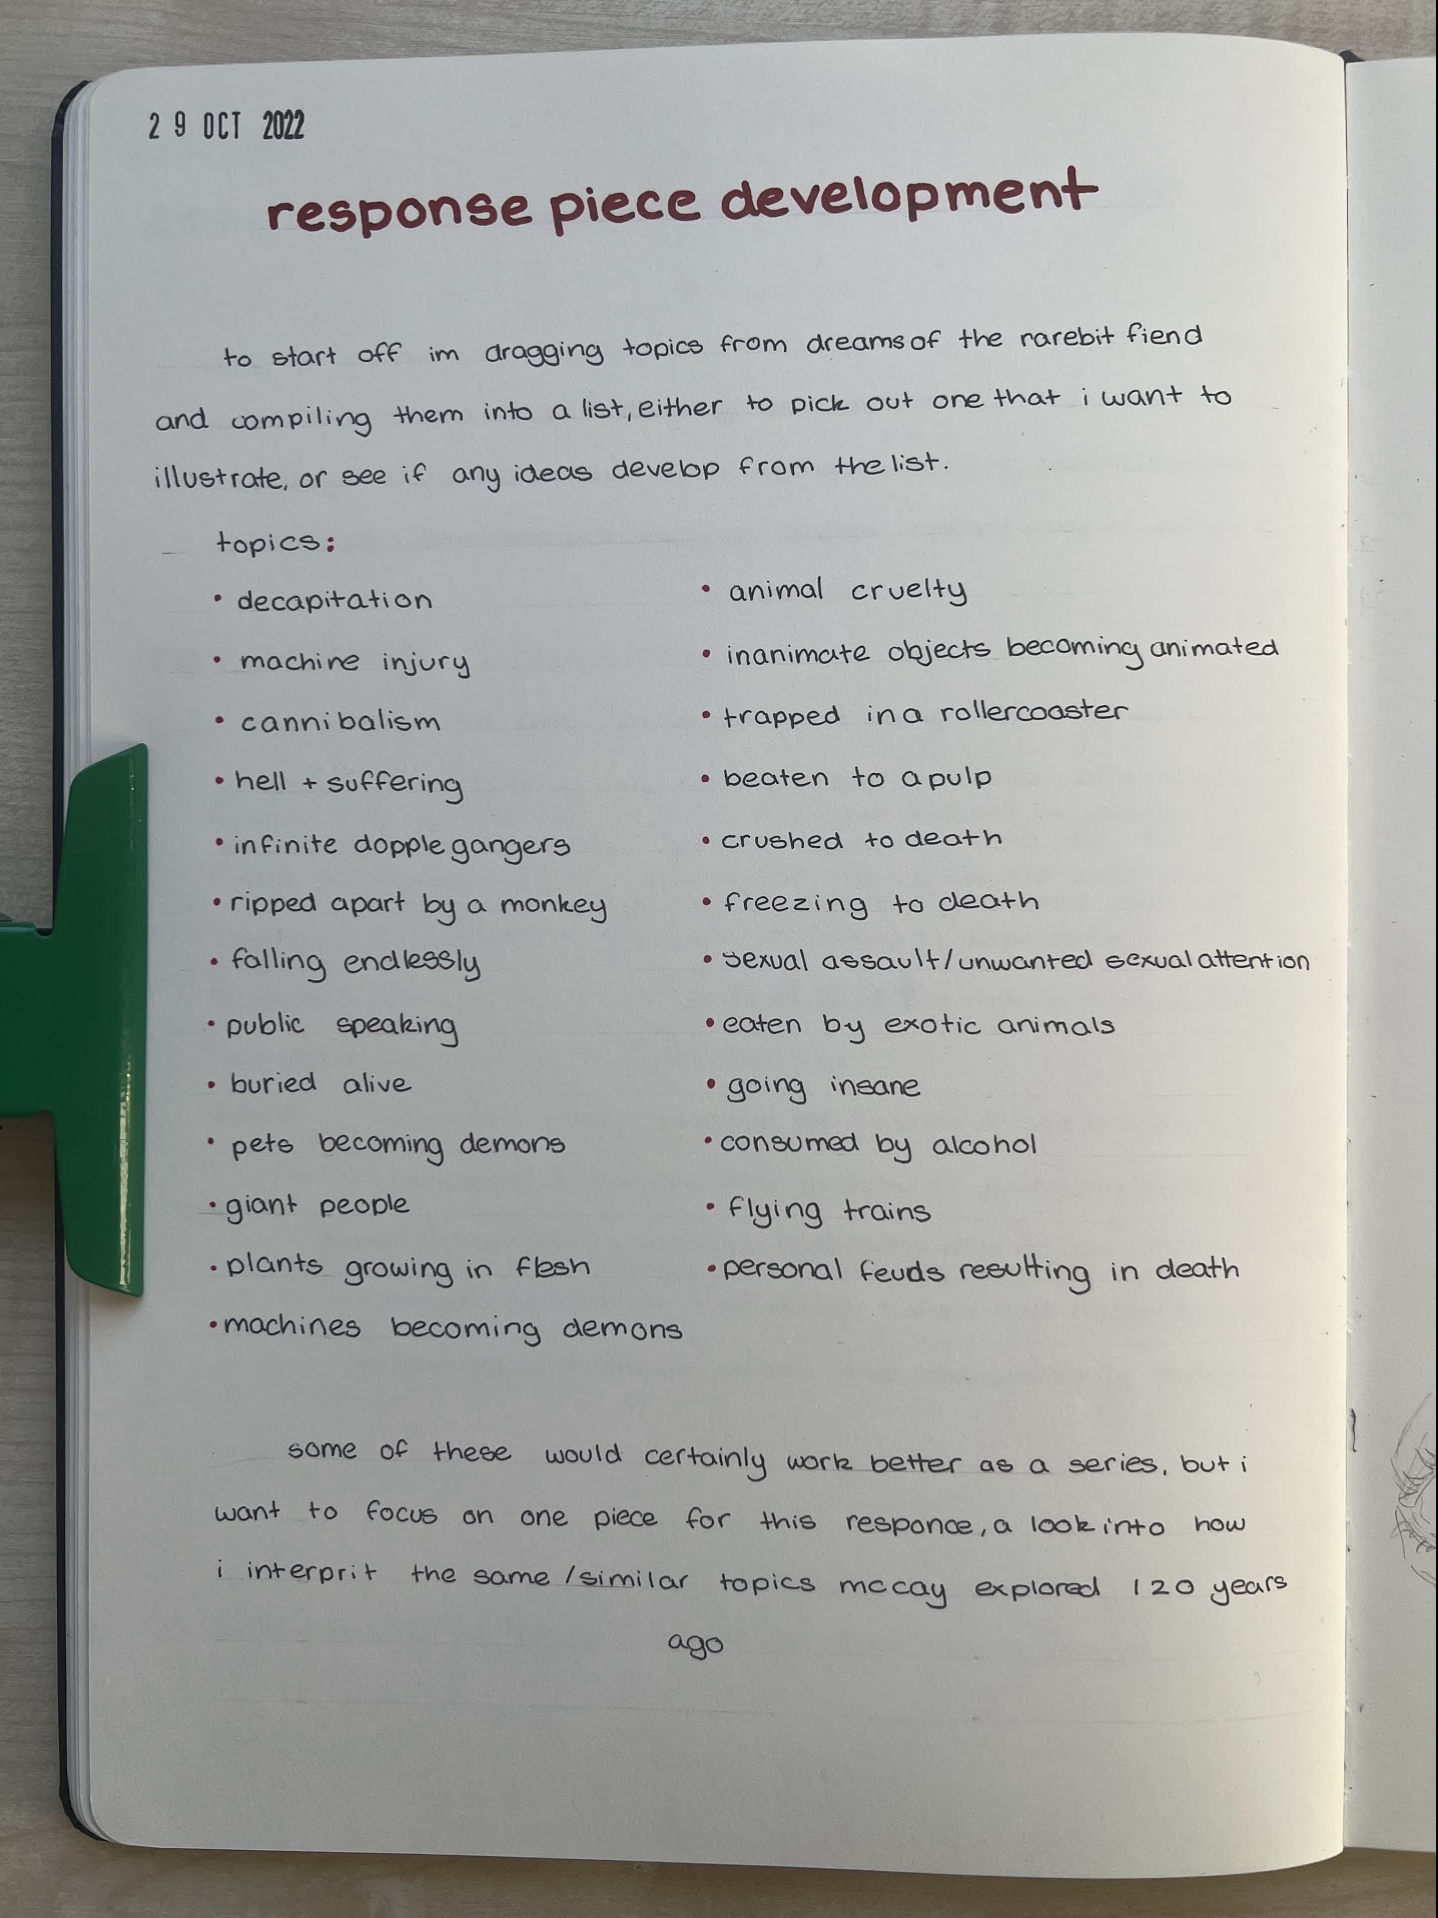 29 OCT 2022
response piece development
to start off im dragging topics from dreams of the rarebit fiend
and compiling them into a list, either to pick out one that i want to
illustrate, or see if any ideas develop from the list.
topics:
• decapitation
• machine injury
• cannibalism
• hell + suffering
• infinite dopplegangers
• ripped apart by a monkey
• falling endlessly
• public speaking
• buried alive
• pets becoming demons
• giant people
• plants growing in flesh
• machines becoming demons
• animal cruelty
• inanimate objects becoming animated
• trapped in a rollercoaster
• beaten to a pulp
• crushed to death
• freezing to death
• sexual assault/unwanted sexual attention
• eaten by exotic animals
• going insane
• consumed by alcohol
• flying trains
• personal feuds resulting in death
some of these would certainly work better as a series, but i
want to focus on one piece for this responce, a look into how
i interprit the same/similar topics mccay explored 120 years
ago